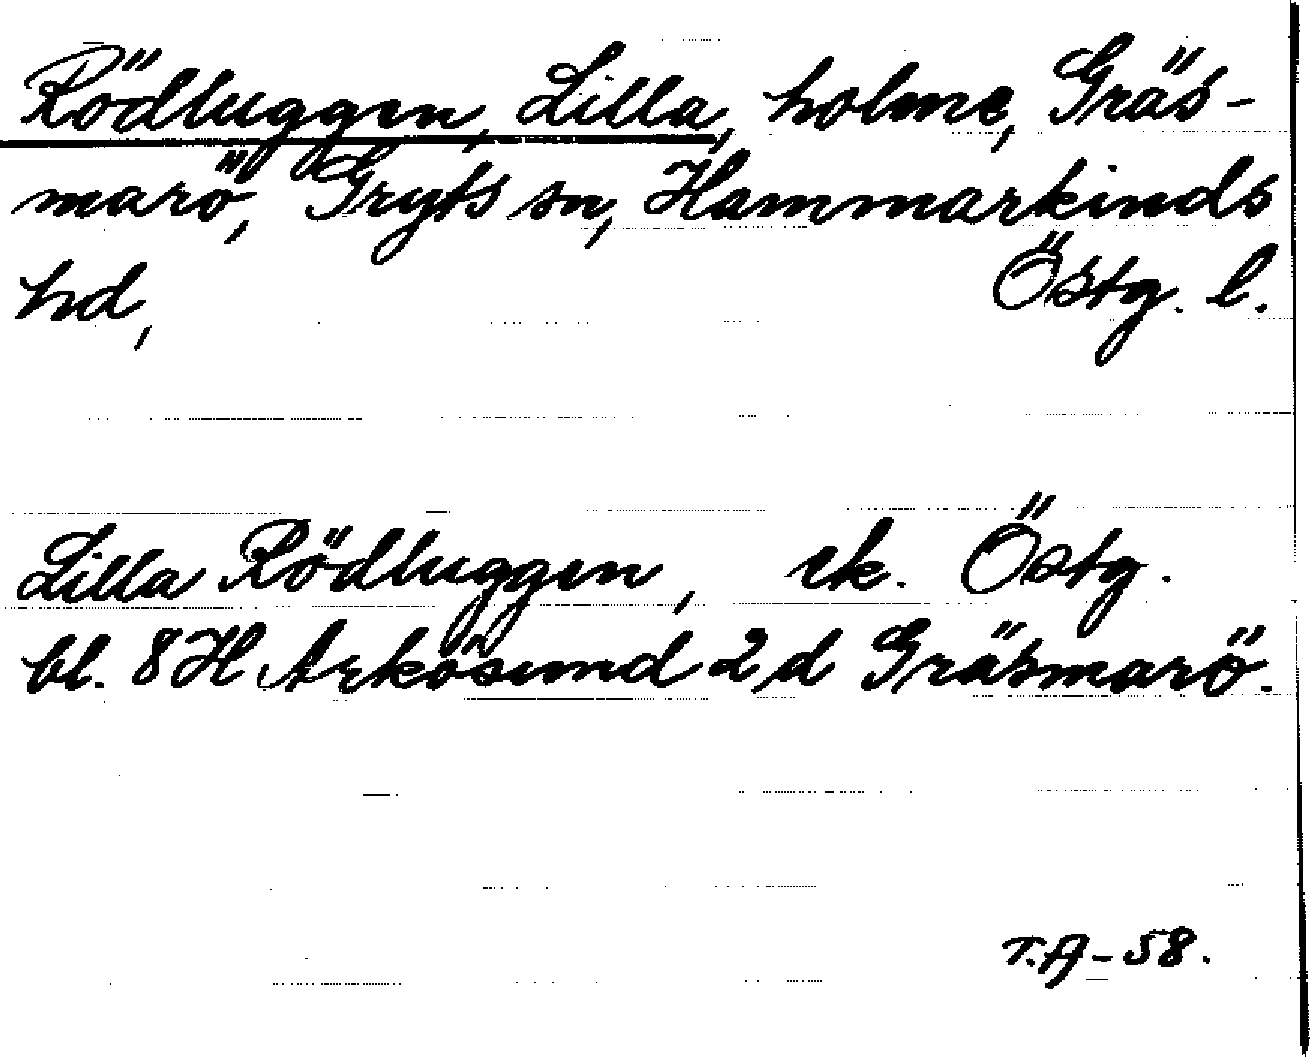 Rödluggen, Lilla, holme, Gräs-
marö, Gryts sn, Hammarkinds
hd, Östg. l.
Lilla Rödluggen, ek. Östg.
bl. 8H Arkösund 2d Gräsmarö.
T.A-58.